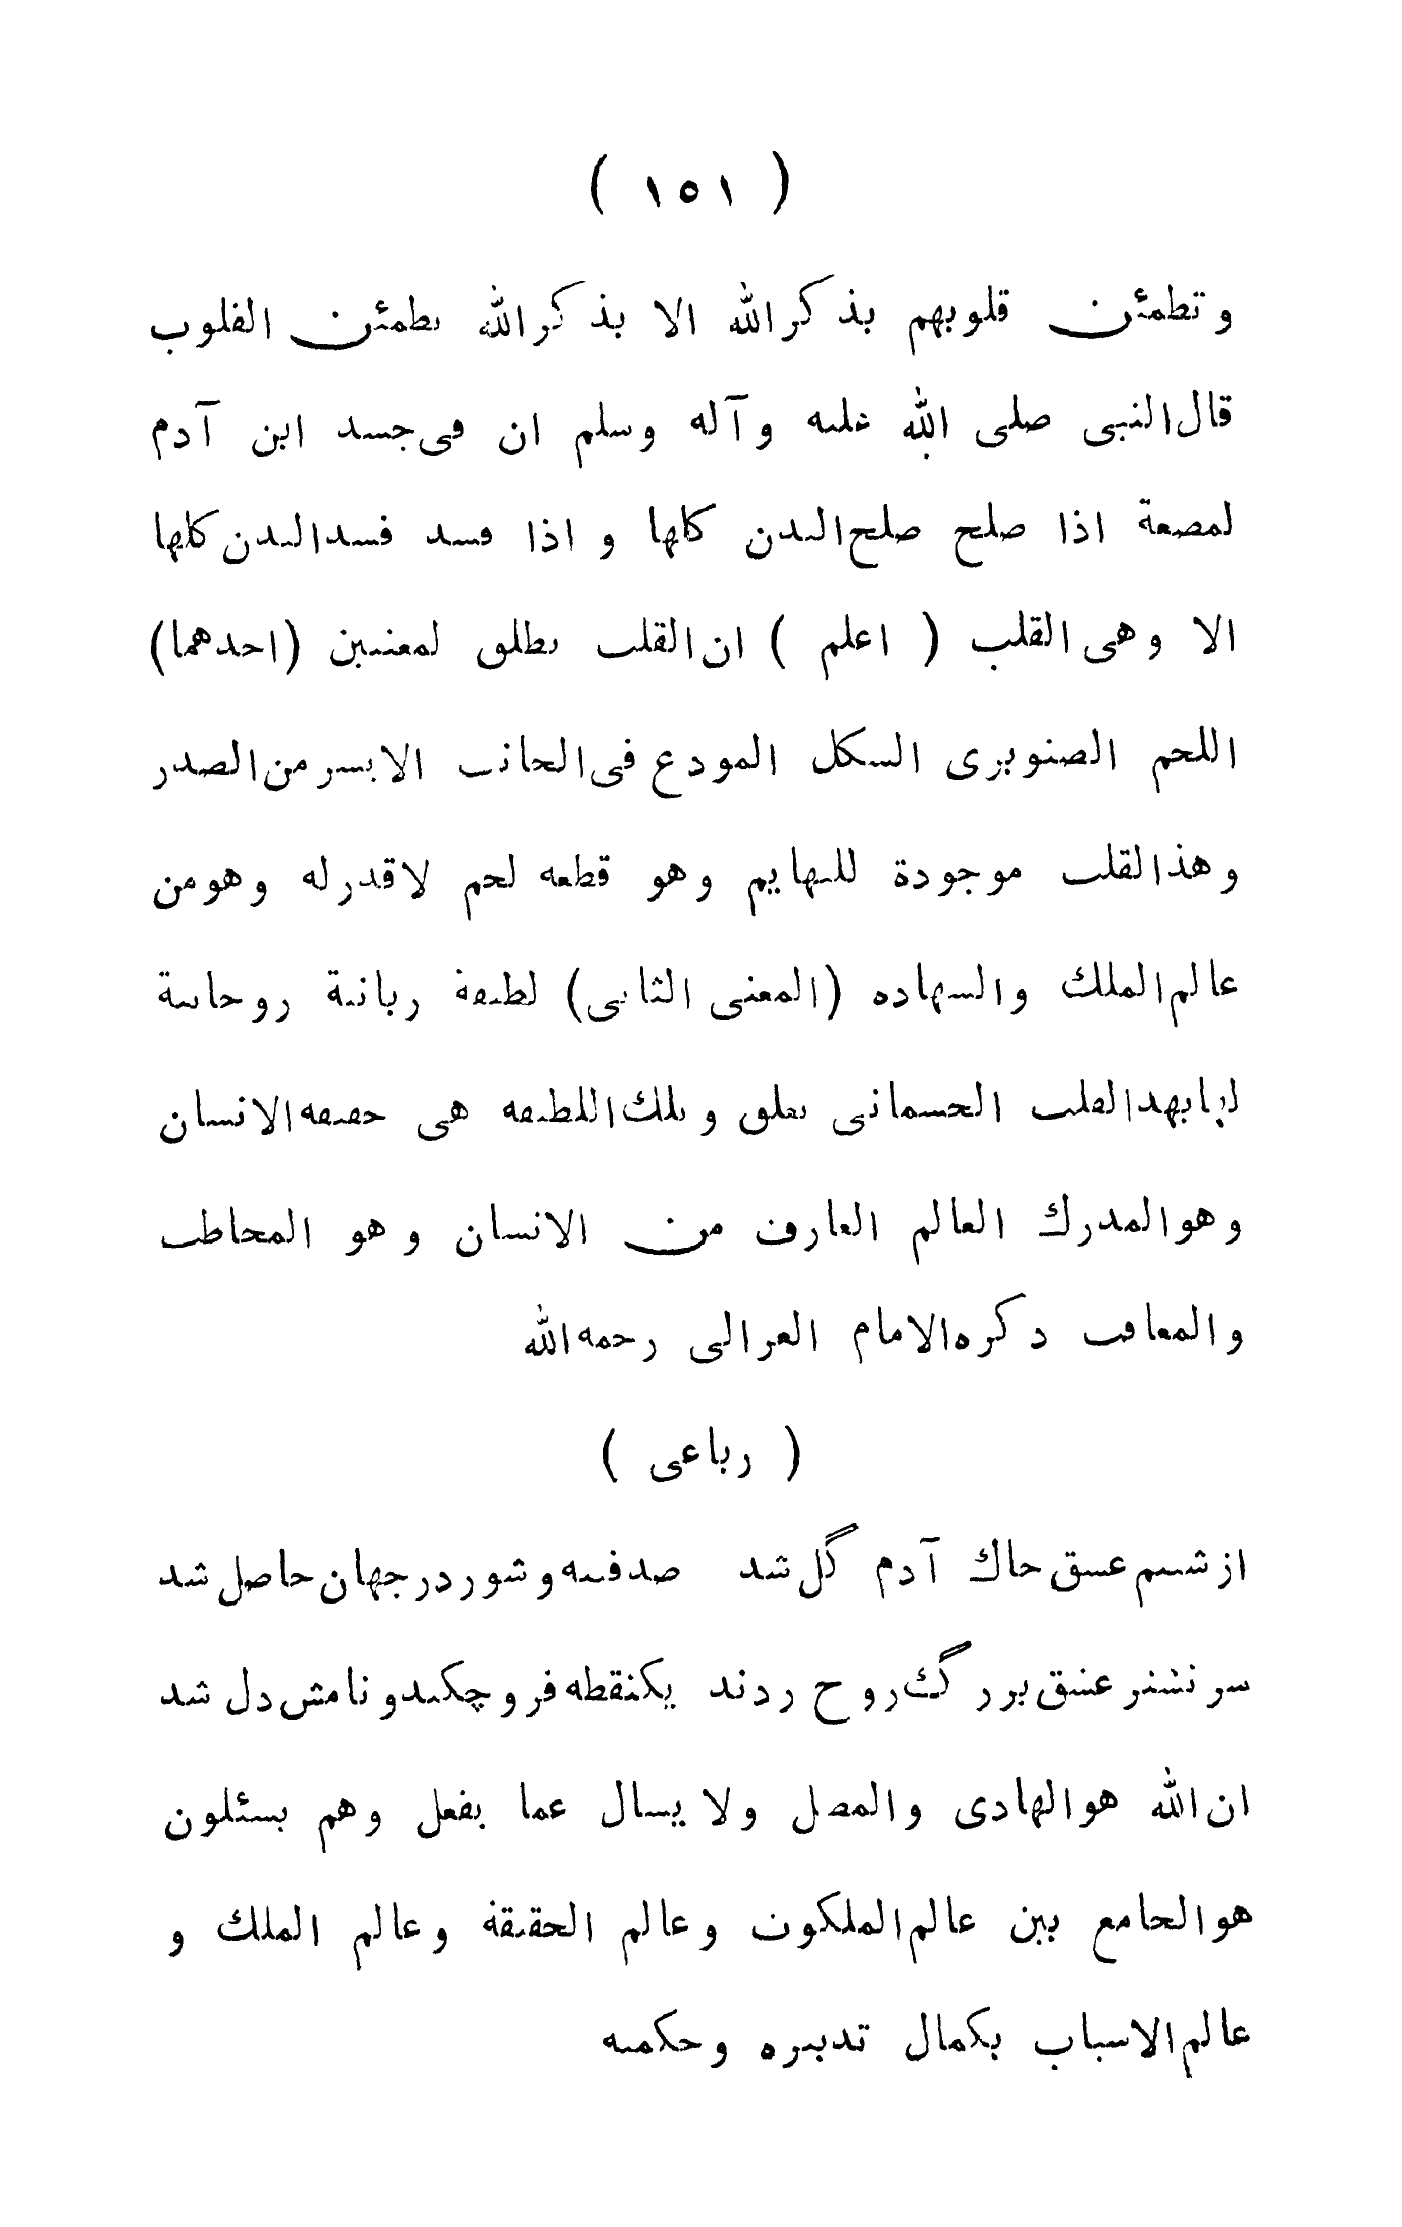 ( ١٥١ )
وتطمئن قلوبهم بذكرالله الا بذكرالله تطمئن القلوب
قال النبى صلى الله عليه وآله وسلم ان فى جسد ابن آدم
لمضغة اذا صلح صلح البدن كلها و اذا فسد فسد البدن كلها
الا وهى القلب ( اعلم ) ان القلب يطلق لمعنيين (احدهما)
اللحم الصنوبرى الشكل المودع فى الجانب الايسر من الصدر
وهذالقلب موجودة للبهايم وهو قطعه لحم لاقدرله وهومن
عالم الملك والشهاده (المعنى الثانى) لطيفة ربانية روحانية
لها بهذالقلب الجسمانى تعلق وتلك اللطيفه هى حقيقه الانسان
وهوالمدرك العالم العارف من الانسان وهو المخاطب
والمعاقب ذكره الامام الغزالى رحمه الله
( رباعى )
از شبنم عشق خاك آدم گل شد صد فتنه وشور در جهان حاصل شد
سر نشتر عشق بر رگ روح زدند يكنقطه فرو چكيد و نامش دل شد
ان الله هوالهادى والمضل ولا يسال عما يفعل وهم يسئلون
هوالجامع بين عالم الملكوت وعالم الحقيقة وعالم الملك و
عالم الاسباب بكمال تدبيره وحكمته